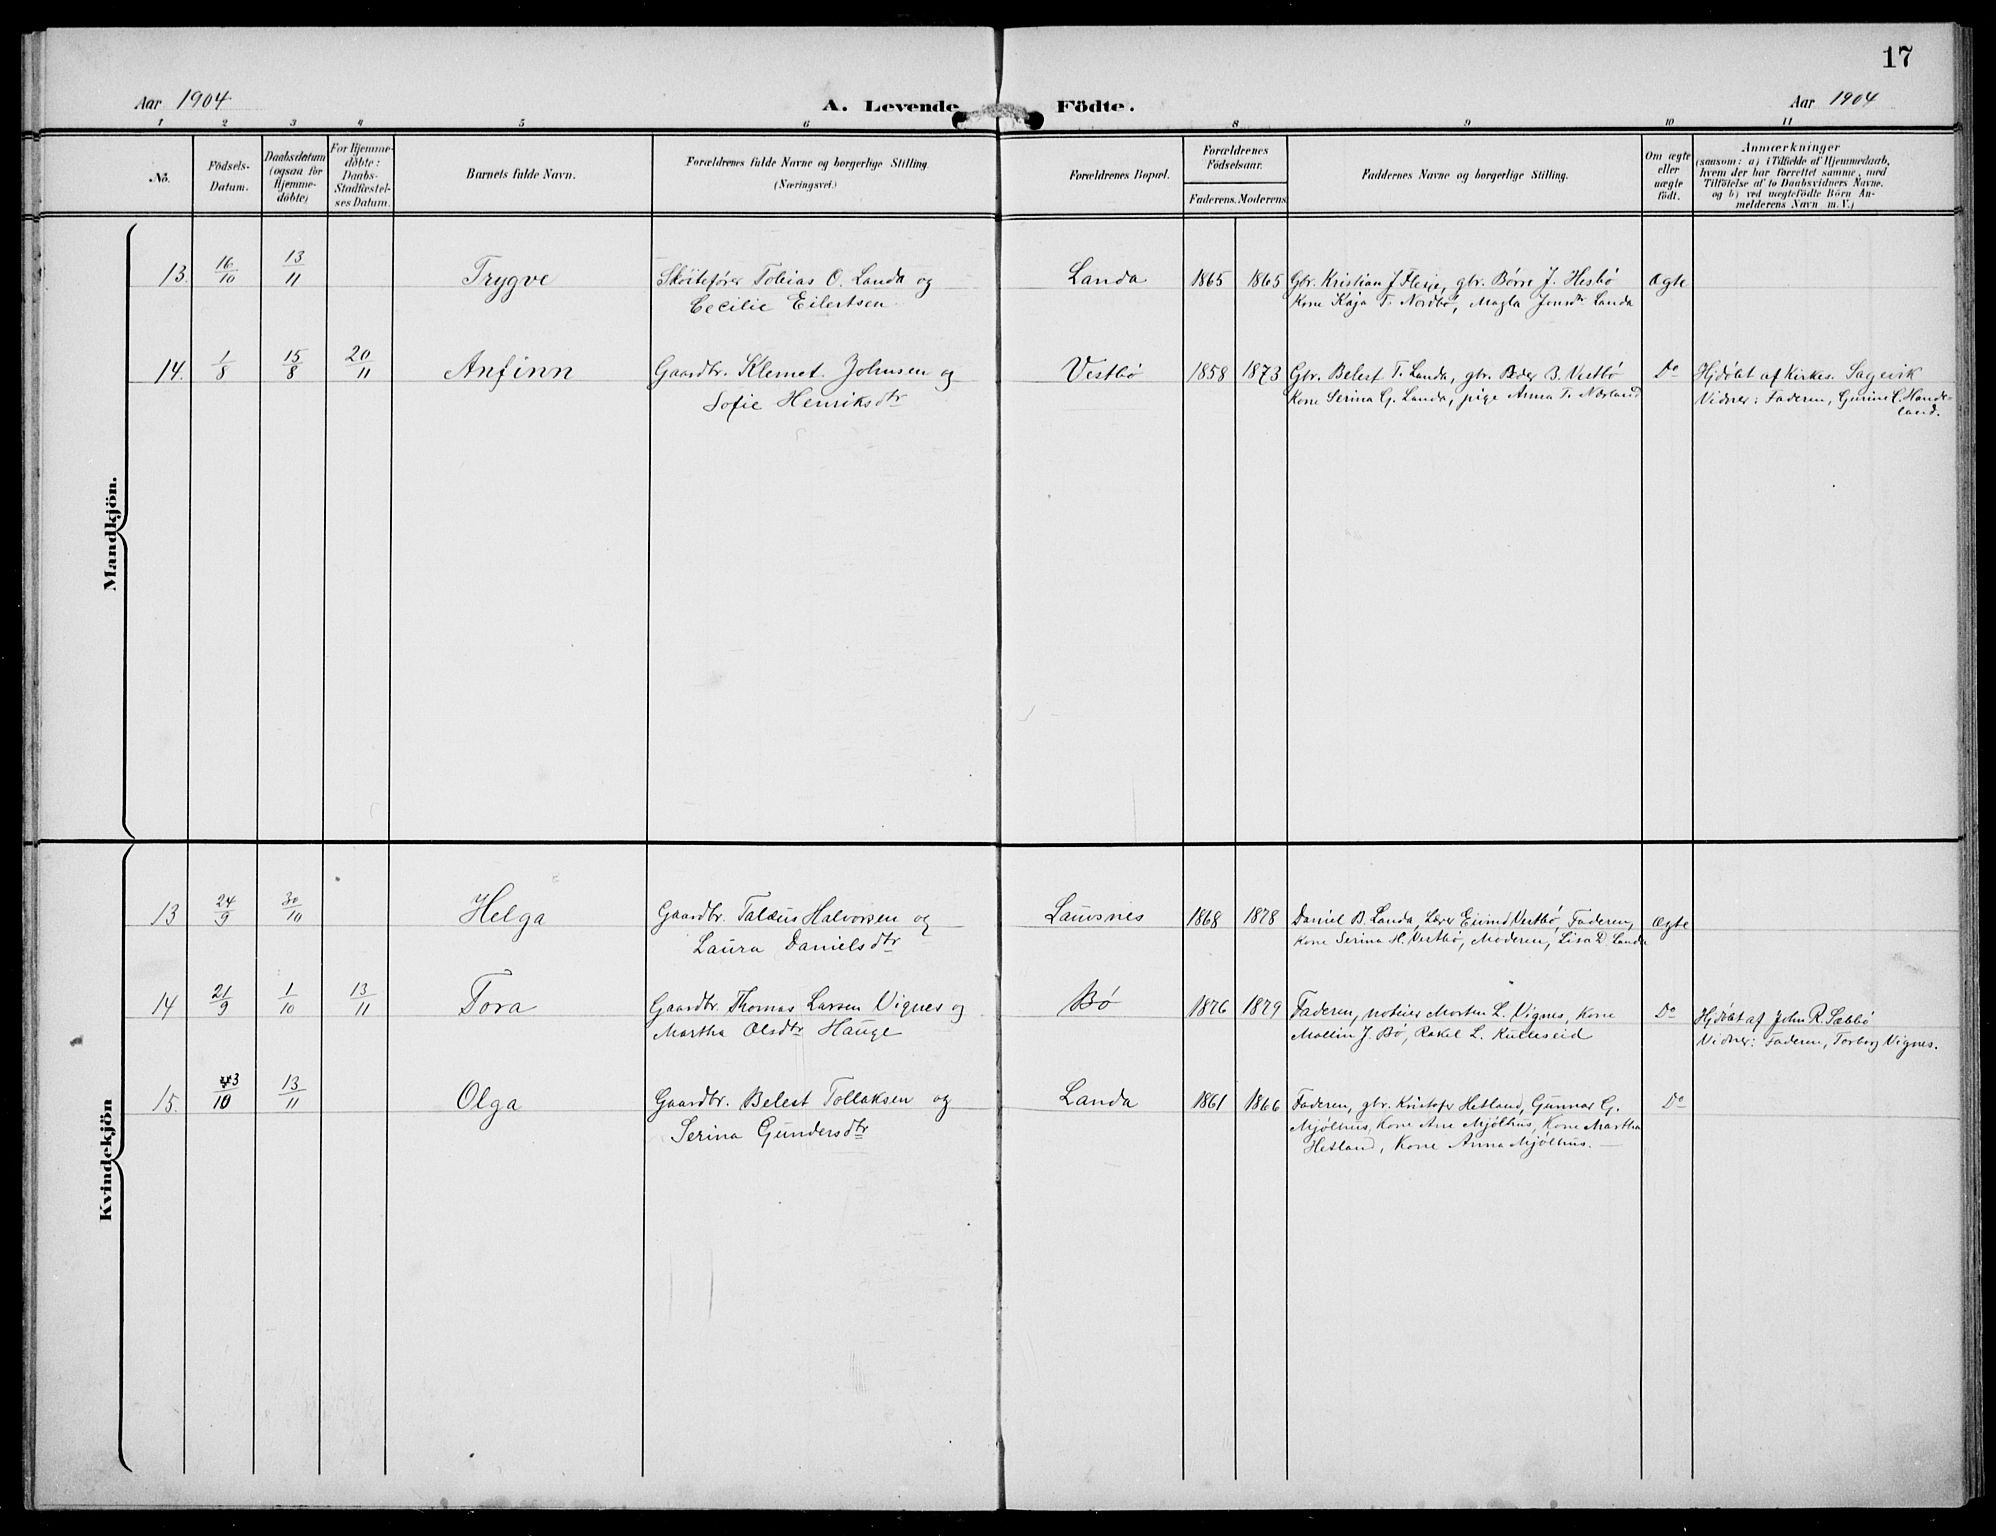 17
Aar 1904
A. Levende
Födte.
Aar 1904
1 2 3 4 5 6 8 9 10 11
No.
Födsels-
Datum.
Daabsdatum
(ogsaa for
Hjemme-
döbte)
For Hjemme-
döbte:
Daabs-
Stadfæstel-
ses Datum.
Barnets fulde Navn.
Forældrenes fulde Navne og borgerlige Stilling.
(Næringsvei.)
Forældrenes Bopæl.
Forældrenes
Födselsaar.
Faderens. Moderens.
Faddernes Navne og borgerlige Stilling.
Om ægte
eller
uægte
födt.
Anmærkninger
(saasom: a) i Tilfælde af Hjemmedaab,
hvem der har forrettet samme, med
Tilföielse af to Daabsvidners Navne.
og b) ved uægtefödte Börn An-
melderens Navn m. V.)
Mandkjön.
13. 16/10 13/11 Trygve Skøitefører Tobias O. Landa og Landa 1865 1865 Gbr. Kristian J. Flesje, gbr. Børre J. Hesbø Ægte
Cecilie Eilertsen Kone Kaja T. Nordbø, Magla Jonsdtr Landa
14. 1/8 15/8 20/11 Anfinn Gaardbr. Klemet Johnsen og Vestbø 1858 1873 Gbr. Belest T. Landa, gbr. Peder B. Vestbø Do Hjdøbt af Kirkes. Sagvik
Sofie Henriksdtr Kone Serina G. Landa, pige Anna T. Næsland Vidner: Faderen, Gurine C. Hande-
land.
Kvindekjön
13 24/9 30/10 Helga Gaardbr. Taläus Halvorsen og Lauvsnes 1868 1878 Daniel B. Landa, Lærer Eivind Vestbø, Faderen, Ægte
Laura Danielsdtr Kone Serina H. Vestbø, Moderen, Lisa D. Landa
14 21/9 1/10 13/11 Tora Gaardbr. Thomas Larsen Vignes og Bø 1876 1879 Faderen, notbas Morten L. Vignes, Kone Do Hjdøbt af John R. Sæbbø
Martha Olsdtr Hauge Mallin J. Bø, Rakel L. Kulleseid Vidner: Faderen, Torborg Vignes.
15. 3/10 13/11 Olga Gaardbr. Belest Tollaksen og Landa 1861 1866 Faderen, gbr. Kristofer Hetland, Gunnar G. Do
Serina Gundersdtr Mjølhus, Kone Ane Mjølhus, Kone Martha
Hetland, Kone Anna Mjølhus. —